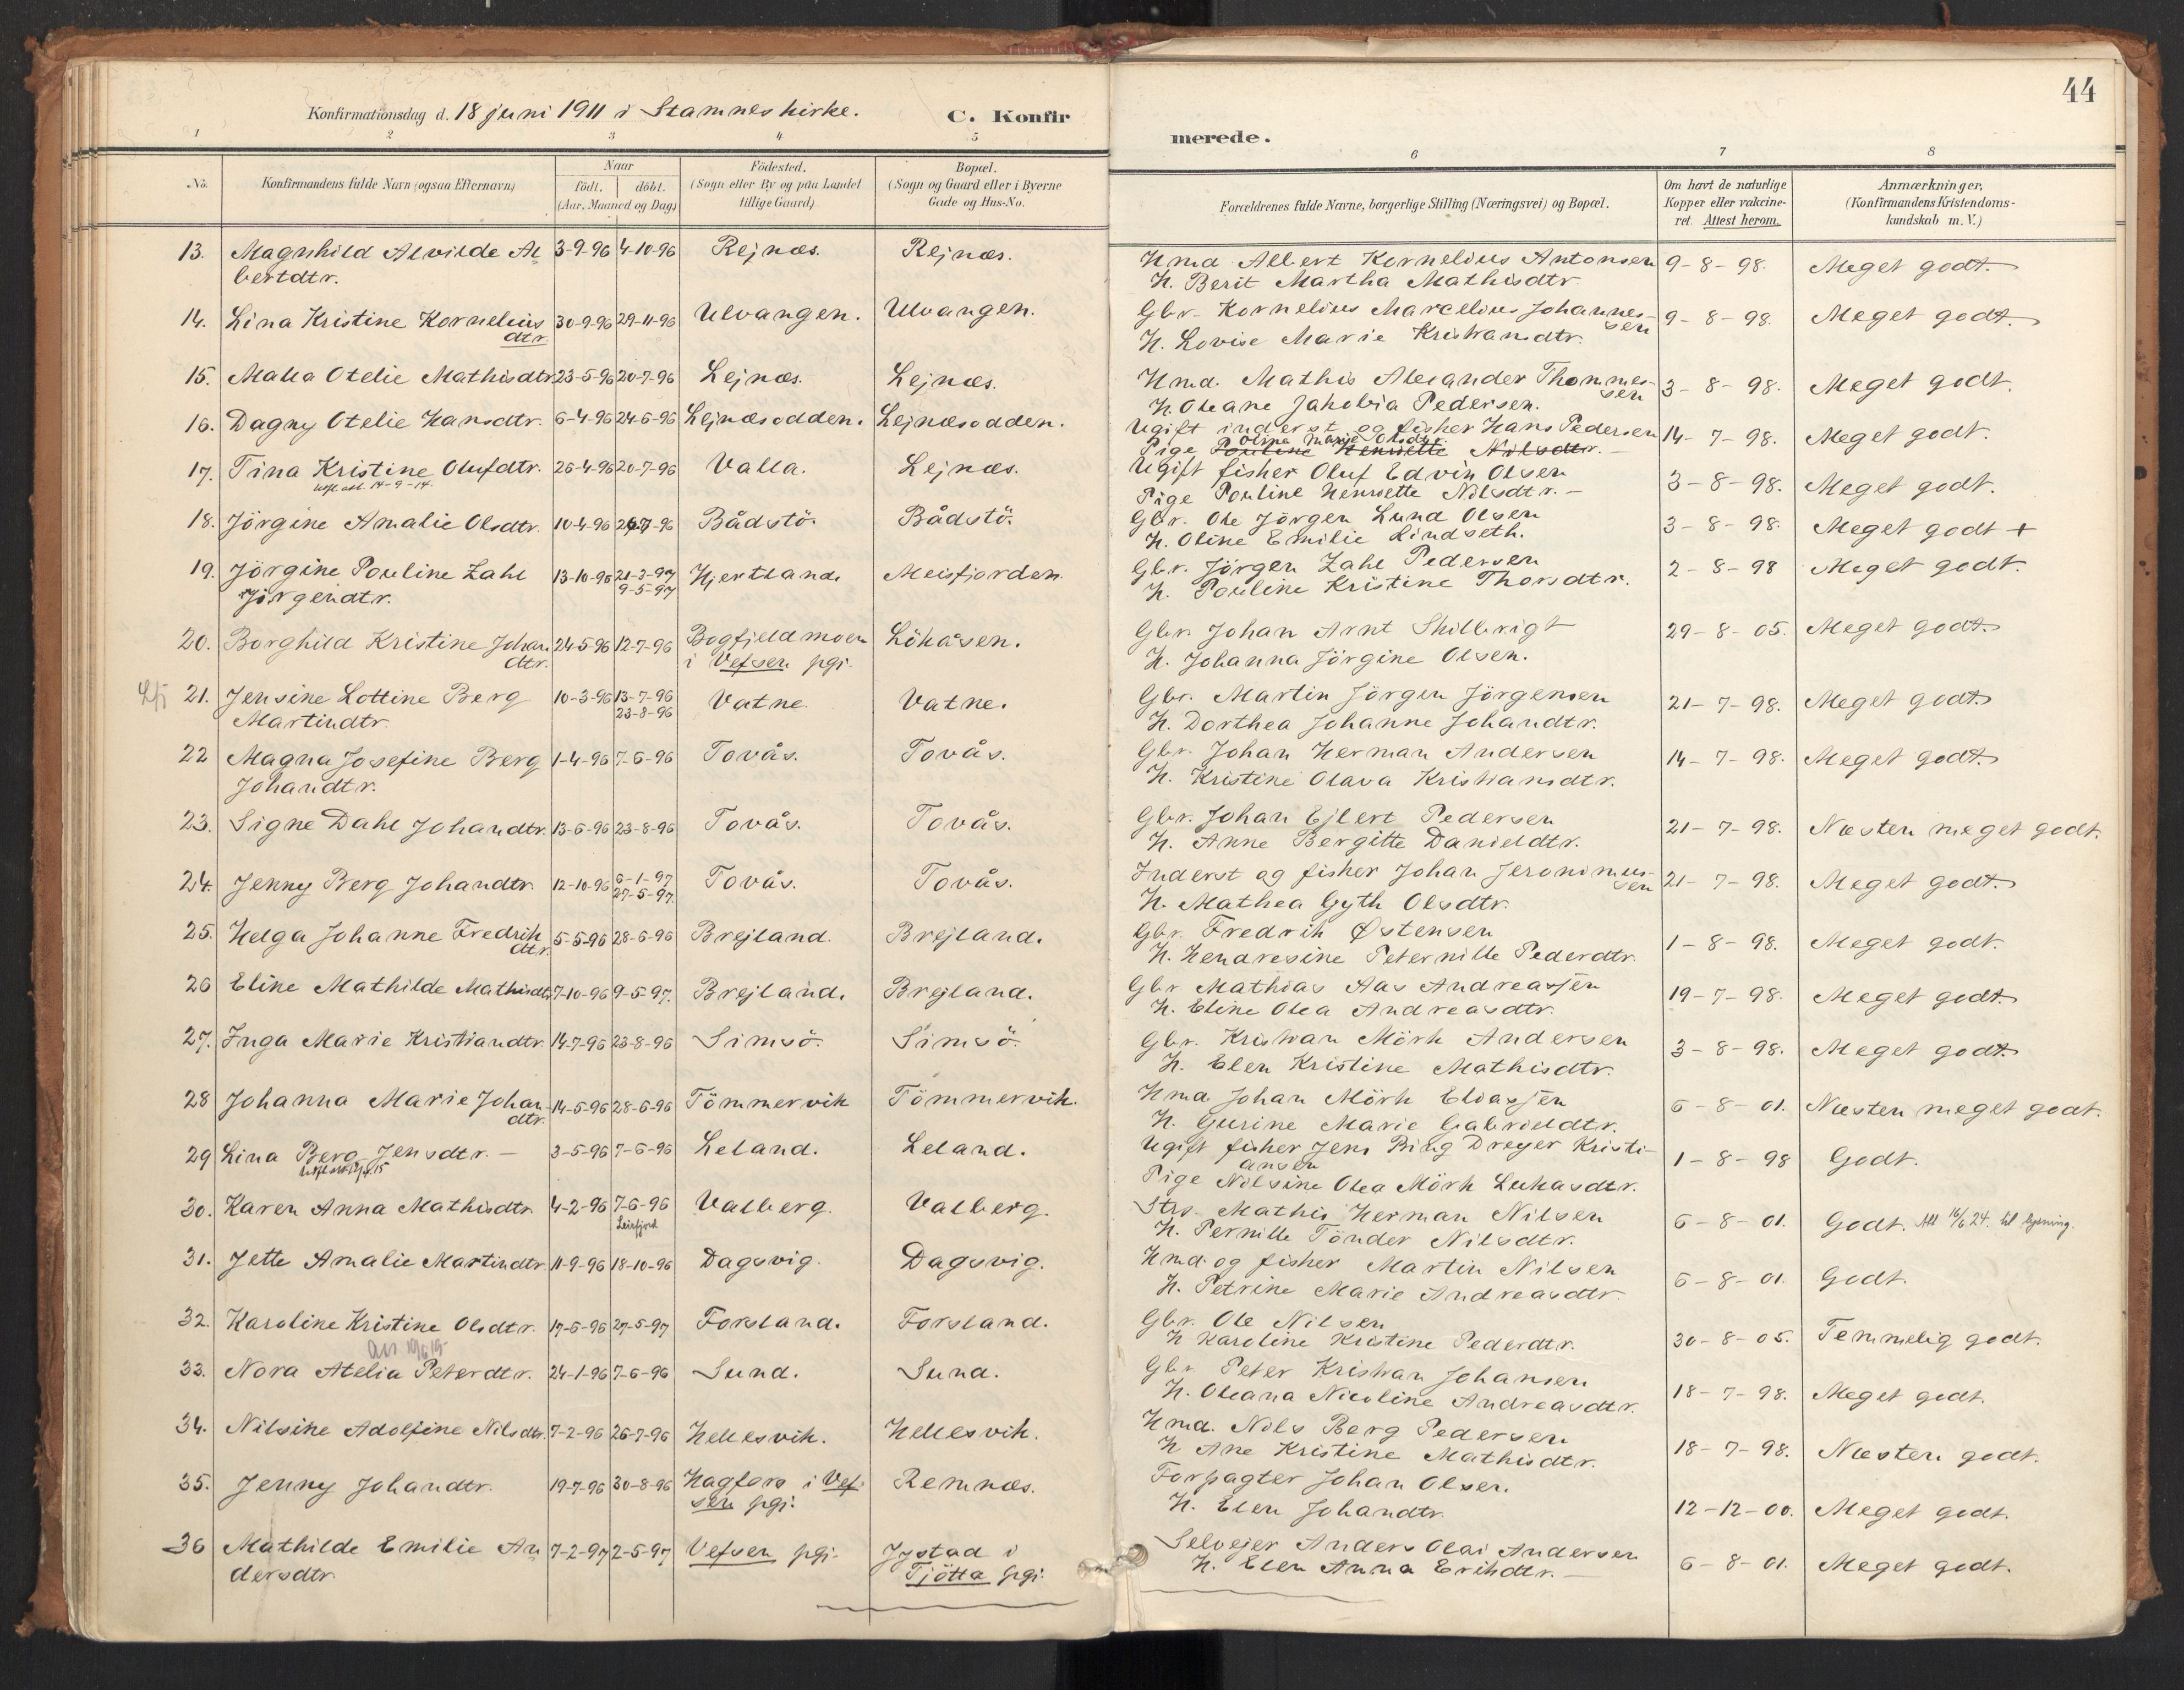 44
Konfirmationsdag d. 18 juni 1911 i Stamnes kirke. C. Konfirmerede.
1 2 3 4 5 6 7 8
No.
Konfirmandens fulde Navn (ogsaa Efternavn)
Naar
födt. döbt.
(Aar, Maaned og Dag)
Födested.
(Sogn eller By og paa Landet
tillige Gaard)
Bopæl.
(Sogn og Gaard eller i Byerne
Gade og Hus-No.
Forældrenes fulde Navne, borgerlige Stilling (Næringsvei) og Bopæl.
Om havt de naturlige
Kopper eller vakcine-
ret. Attest herom.
Anmærkninger.
(Konfirmandens Kristendoms-
kundskab m. V.)
13. Magnhild Alvilde Al 3-9-96 4-10-96 Rejnæs. Rejnæs. Hmd Albert Kornelius Antonsen 9-8-98. Meget godt.
bertdtr. H. Berit Martha Mathisdtr
14. Lina Kristine Kornelius 30-9-96 29-11-96 Ulvangen. Ulvangen. Gbr. Kornelius Marcelius Johannes- 9-8-98. Meget godt.
dtr. H. Lovise Marie Kristiansdtr. sen
15. Malla Otelie Mathisdtr 23-5-96 20-7-96 Lejnæs. Lejnæs. Hmd. Mathis Alexander Thommes- 3-8-98. Meget godt.
H. Oleane Jakobia Pedersen. sen
16. Dagny Otelie Hansdtr. 6-4-96 24-6-96 Lejnæsodden. Lejnæsodden. Ugift inderst og fisker Hans Pedersen 14-7-98. Meget godt.
Pige Pouline Henriette Nilsdtr. Marie Olsdtr.
17. Tina Kristine Olufdtr. 26-4-96 20-7-96 Valla. Lejnæs. Ugift fisker Oluf Edvin Olsen 3-8-98. Meget godt.
14-9-14. Pige Pouline Henriette Nilsdtr. -
18. Jörgine Amalie Olsdtr. 10-4-96 26-7-96 Bådstö. Bådstö. Gbr. Ole Jörgen Lund Olsen 3-8-98. Meget godt +
H. Oline Emilie Lindseth.
19. Jörgine Pouline Zahl 13-10-96 21-3-97 Hjertland. Meisfjorden. Gbr. Jörgen Zahl Pedersen 2-8-98 Meget godt.
Jörgendtr. 9-5-97 H. Pouline Kristine Thorsdtr.
20. Borghild Kristine Johan 24-5-96 12-7-96 Bogfjeldmoen Lökåsen. Gbr. Johan Arnt Skilbrigt 29-8-05. Meget godt.
dtr. i Vefsen pgj. H. Johanna Jörgine Olsen.
21. Jensine Lottine Berg 10-3-96 13-7-96 Vatne. Vatne. Gbr. Martin Jörgen Jörgensen 21-7-98. Meget godt.
Martindtr. 23-8-96 H. Dorthea Johanne Johandtr.
22 Magna Josefine Berg 1-4-96 7-6-96 Tovås. Tovås. Gbr. Johan Herman Andersen 14-7-98. Meget godt.
Johandtr. H. Kristine Olava Kristiansdtr.
23. Signe Dahl Johandtr. 13-6-96 23-8-96 Tovås. Tovås. Gbr. Johan Ejlert Pedersen 21-7-98. Næsten meget godt.
H. Anne Bergitte Danieldtr.
24. Jenny Berg Johandtr. 12-10-96 6-1-97 Tovås. Tovås. Inderst og fisker Johan Jeronimus- 21-7-98. Meget godt.
27-5-97. H. Mathea Gyth Olsdtr. sen
25. Helga Johanne Fredrik 5-5-96 28-6-96 Brejland. Brejland. Gbr. Fredrik Østensen 1-8-98. Meget godt.
dtr. H. Hendresine Peternille Pederdtr.
26 Eline Mathilde Mathisdtr 7-10-96 9-5-97. Brejland. Brejland. Gbr Mathias Aas Andreassen 19-7-98. Meget godt.
H. Eline Olea Andreasdtr.
27. Inga Marie Kristiandtr. 14-7-96 23-8-96 Simsö. Simsö. Gbr. Kristian Mörk Andersen 3-8-98. Meget godt.
H. Elen Kristine Mathisdtr.
28 Johanna Marie Johan- 14-5-96 28-6-96 Tömmervik Tömmervik. Hmd Johan Mörk Eliassen 6-8-01. Næsten meget godt.
dtr. H. Gurine Marie Gabrieldtr.
29 Lina Berg Jensdtr. - 3-5-96 7-6-96 Leland. Leland. Ugift fisker Jens Bing Dreyer Kristi- 1-8-98 Godt.
ansen
Pige Nilsine Olea Mörk Lukasdtr.
30. Karen Anna Mathisdtr. 4-2-96 7-6-96 Valberg. Valberg. Strs. Mathis Herman Nilsen 6-8-01. Godt. Att 16/6 24. til lysning.
Leirfjord H. Pernille Tönder Nilsdtr.
31. Jette Amalie Martindtr. 11-9-96 18-10-96 Dagsvig. Dagsvig. Hmd. og fisker Martin Nilsen 6-8-01. Godt.
H. Petrine Marie Andreasdtr.
32. Karoline Kristine Olsdtr. 17-6-96 27-5-97 Forsland. Forsland. Gbr. Ole Nilsen 30-8-05. Temmelig godt.
H Karoline Kristine Pederdtr.
33. Nora Atelia Peterdtr. 24-1-96 7-6-96 Sund. Sund. Gbr. Peter Kristian Johansen 18-7-98. Meget godt.
H. Oleana Nicoline Andreasdtr.
34. Nilsine Adolfine Nilsdtr. 7-2-96 26-7-96 Hellesvik. Hellesvik. Hmd. Nils Berg Pedersen 18-7-98. Næsten godt.
H Ane Kristine Mathisdtr.
35. Jenny Johandtr. 19-7-96 30-8-96 Hagfors i Vef- Remnæs. Forpagter Johan Olsen. 12-12-00. Meget godt.
sen pgj. H. Elen Johandtr.
36 Mathilde Emilie An 7-2-97 2-5-97 Vefsen pgj. Jystad i Selvejer Anders Olai Andersen 6-8-01. Meget godt.
dersdtr. Tjötta pgj. H. Elen Anna Erikdtr. -